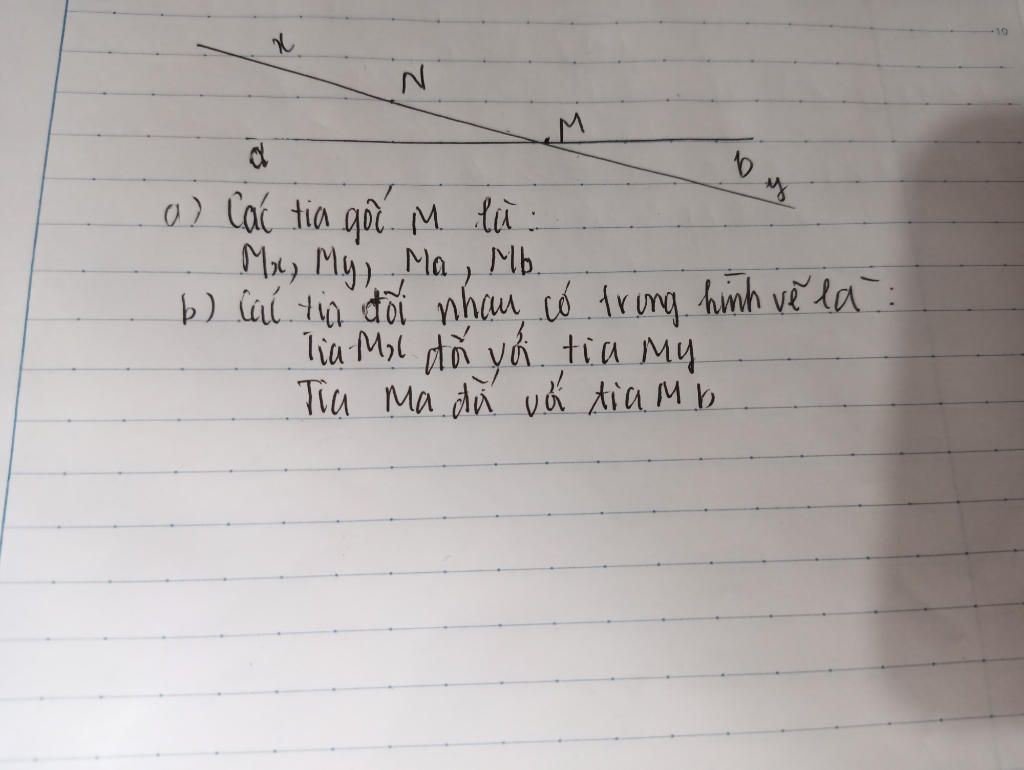 x
N
M
a
b
y
a) Các tia gốc M là:
Mx, My, Ma, Mb.
b) Các tia đối nhau có trong hình vẽ là:
Tia Mx đối với tia My
Tia Ma đối với tia Mb